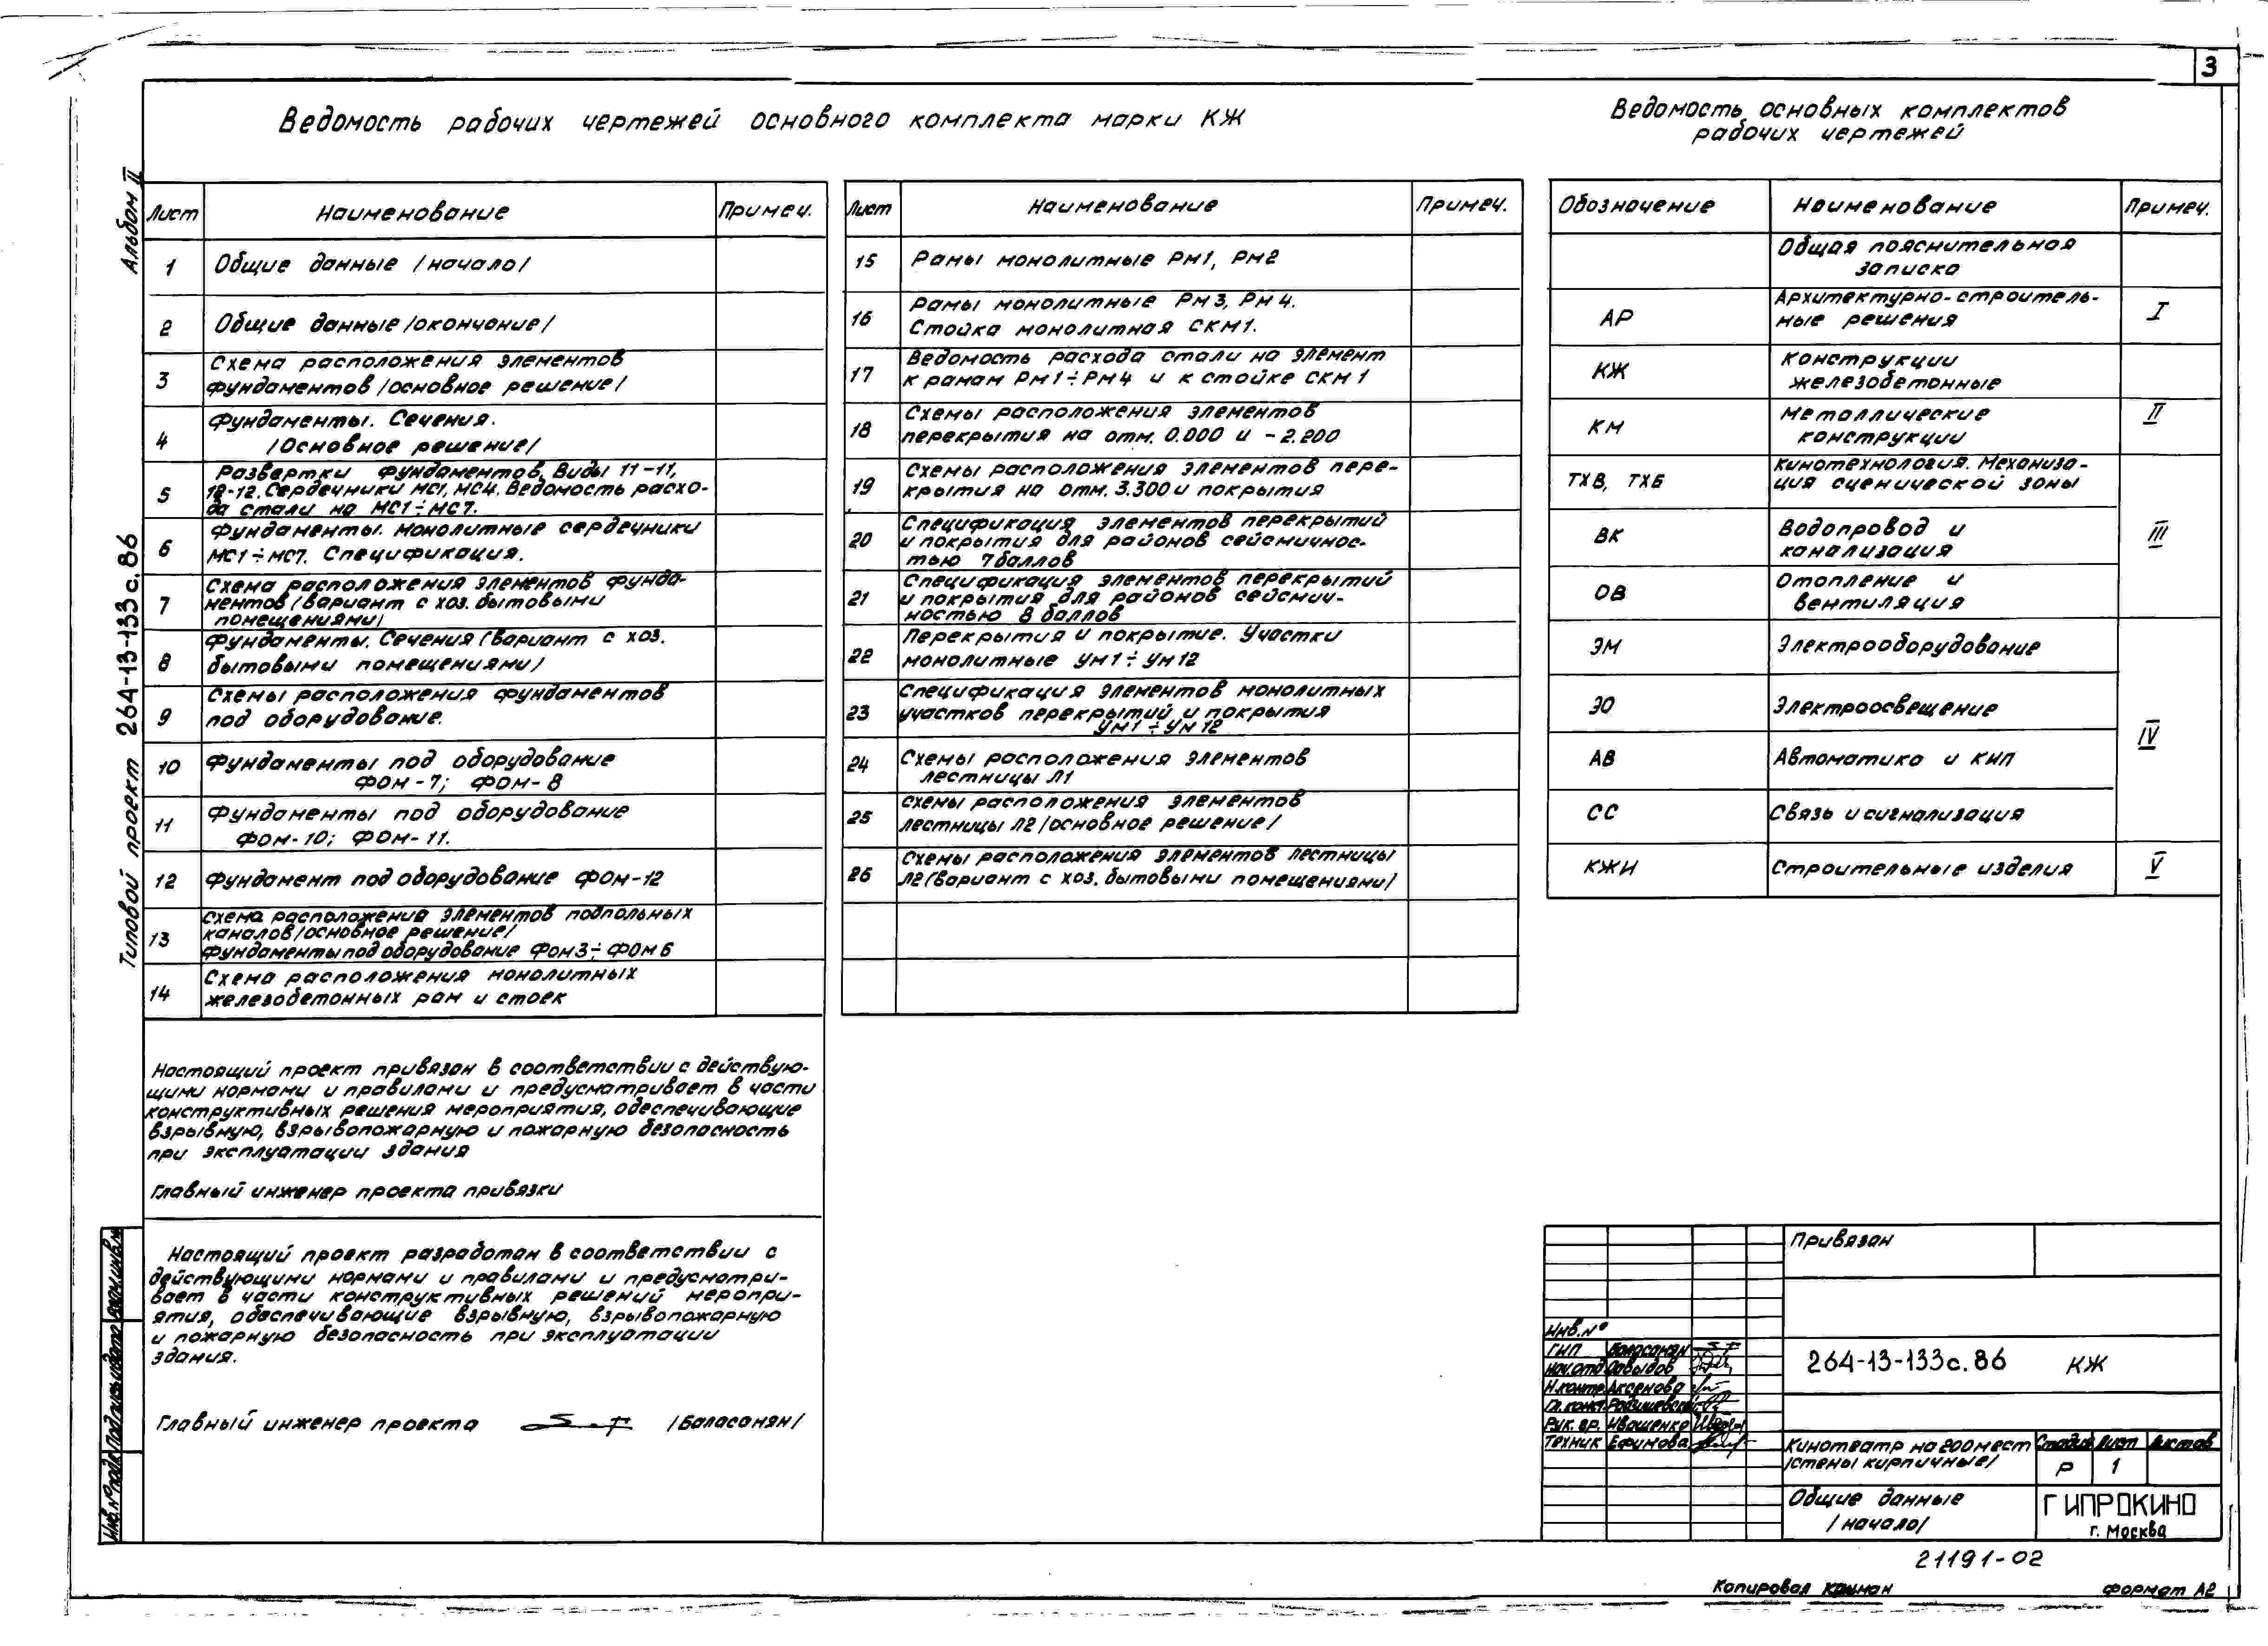 3
Ведомость рабочих чертежей основного комплекта марки КЖ
Ведомость основных комплектов
рабочих чертежей
Альбом II
Типовой проект 264-13-133с.86
Лист Наименование Примеч.
1 Общие данные /начало/
2 Общие данные /окончание/
3 Схема расположения элементов
фундаментов /основное решение/
4 Фундаменты. Сечения.
/Основное решение/
5 Развертки фундаментов, Виды 11-11,
12-12. Сердечники МС1, МС4. Ведомость расхо-
да стали на МС1÷МС7.
6 Фундаменты. Монолитные сердечники
МС1÷МС7. Спецификация.
7 Схема расположения элементов фунда-
ментов /вариант с хоз. бытовыми
помещениями/
8 Фундаменты. Сечения /вариант с хоз.
бытовыми помещениями/
9 Схемы расположения фундаментов
под оборудование.
10 Фундаменты под оборудование
ФОМ-7; ФОМ-8
11 Фундаменты под оборудование
ФОМ-10; ФОМ-11.
12 Фундамент под оборудование ФОМ-12
13 Схема расположения элементов подпольных
каналов /основное решение/
Фундаменты под оборудование ФОМ3÷ФОМ6
14 Схема расположения монолитных
железобетонных рам и стоек
Лист Наименование Примеч.
15 Рамы монолитные РМ1, РМ2
16 Рамы монолитные РМ3, РМ4.
Стойка монолитная СКМ1.
17 Ведомость расхода стали на элемент
к рамам РМ1÷РМ4 и к стойке СКМ1
18 Схемы расположения элементов
перекрытия на отм. 0.000 и -2.200
19 Схемы расположения элементов пере-
крытия на отм. 3.300 и покрытия
20 Спецификация элементов перекрытий
и покрытия для районов сейсмичнос-
тью 7 баллов
21 Спецификация элементов перекрытий
и покрытия для районов сейсмич-
ностью 8 баллов
22 Перекрытия и покрытие. Участки
монолитные УМ1÷УМ12
23 Спецификация элементов монолитных
участков перекрытий и покрытия
УМ1÷УМ12
24 Схемы расположения элементов
лестницы Л1
25 Схемы расположения элементов
лестницы Л2 /основное решение/
26 Схемы расположения элементов лестницы
Л2 (вариант с хоз. бытовыми помещениями/
Обозначение Наименование Примеч.
Общая пояснительная
записка
АР Архитектурно-строитель-
ные решения I
КЖ Конструкции
железобетонные
КМ Металлические
конструкции
II
ТХВ, ТХБ Кинотехнология. Механиза-
ция сценической зоны
ВК Водопровод и
канализация
III
ОВ Отопление и
вентиляция
ЭМ Электрооборудование
ЭО Электроосвещение
IV
АВ Автоматика и КИП
СС Связь и сигнализация
КЖИ Строительные изделия V
Настоящий проект привязан в соответствии с действую-
щими нормами и правилами и предусматривает в части
конструктивных решения мероприятия, обеспечивающие
взрывную, взрывопожарную и пожарную безопасность
при эксплуатации здания
Главный инженер проекта привязки
Настоящий проект разработан в соответствии с
действующими нормами и правилами и предусматри-
вает в части конструктивных решений меропри-
ятия, обеспечивающие взрывную, взрывопожарную
и пожарную безопасность при эксплуатации
здания.
Главный инженер проекта /Баласанян/
Инв.№ подл. Подпись и дата Взам.инв.№
Привязан
Инв.№
ГИП Баласанян
Нач.отд Давыдов
Н.контр. Аксенова
Гл.конст.
Рук. гр. Иващенко
Техник Ефимова
264-13-133с.86 КЖ
Кинотеатр на 200 мест
/стены кирпичные/
Стадия Лист Листов
Р 1
Общие данные
/начало/
ГИПРОКИНО
г. Москва
21191-02
Копировал
Формат А2